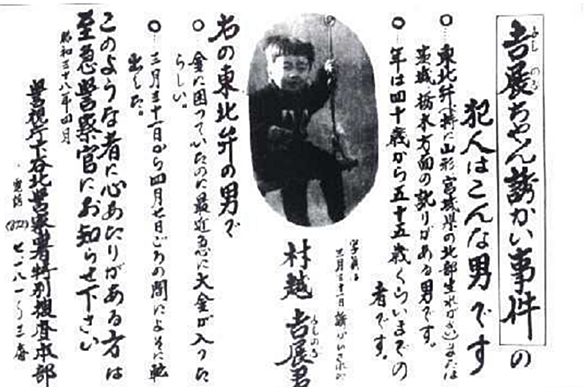 吉展ちゃん誘かい事件の
よしのぶ
犯人はこんな男です
○東北弁(特に山形 宮城県の北部生れ)または
茨城、栃木方面の訛りがある男です。
○年は四十歳から五十五歳くらいまでの
者です。
写真は
三月三十一日誘かいされた
村越 吉展君
よしのぶ
右の東北弁の男で
○金に困っていたのに最近急に大金が入った
らしい。
○三月三十一日から四月七日ごろの間によそに転
出した。
このような者に心あたりがある方は
至急警察官にお知らせ下さい
昭和三十八年四月
警視庁下谷北警察署特別捜査本部
電話(872)七一八一〜三番